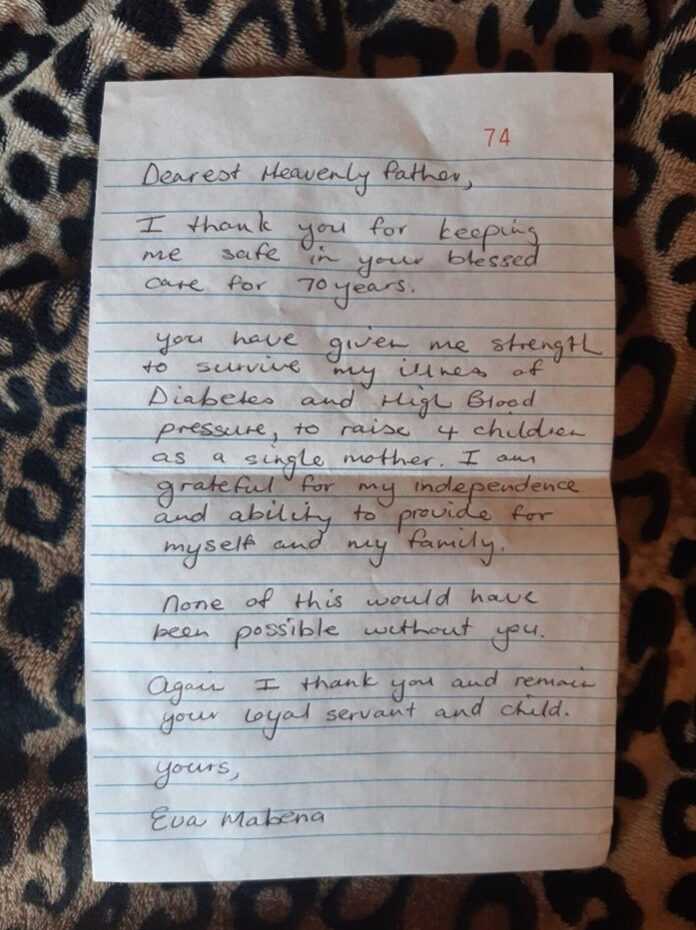 74
Dearest Heavenly Father,
I thank you for keeping
me safe in your blessed
care for 70 years.
you have given me strength
to survive my illness of
Diabetes and High Blood
pressure, to raise 4 children
as a single mother. I am
grateful for my independence
and ability to provide for
myself and my family.
None of this would have
been possible without you.
Again I thank you and remain
your loyal servant and child.
yours,
Eva Mabena